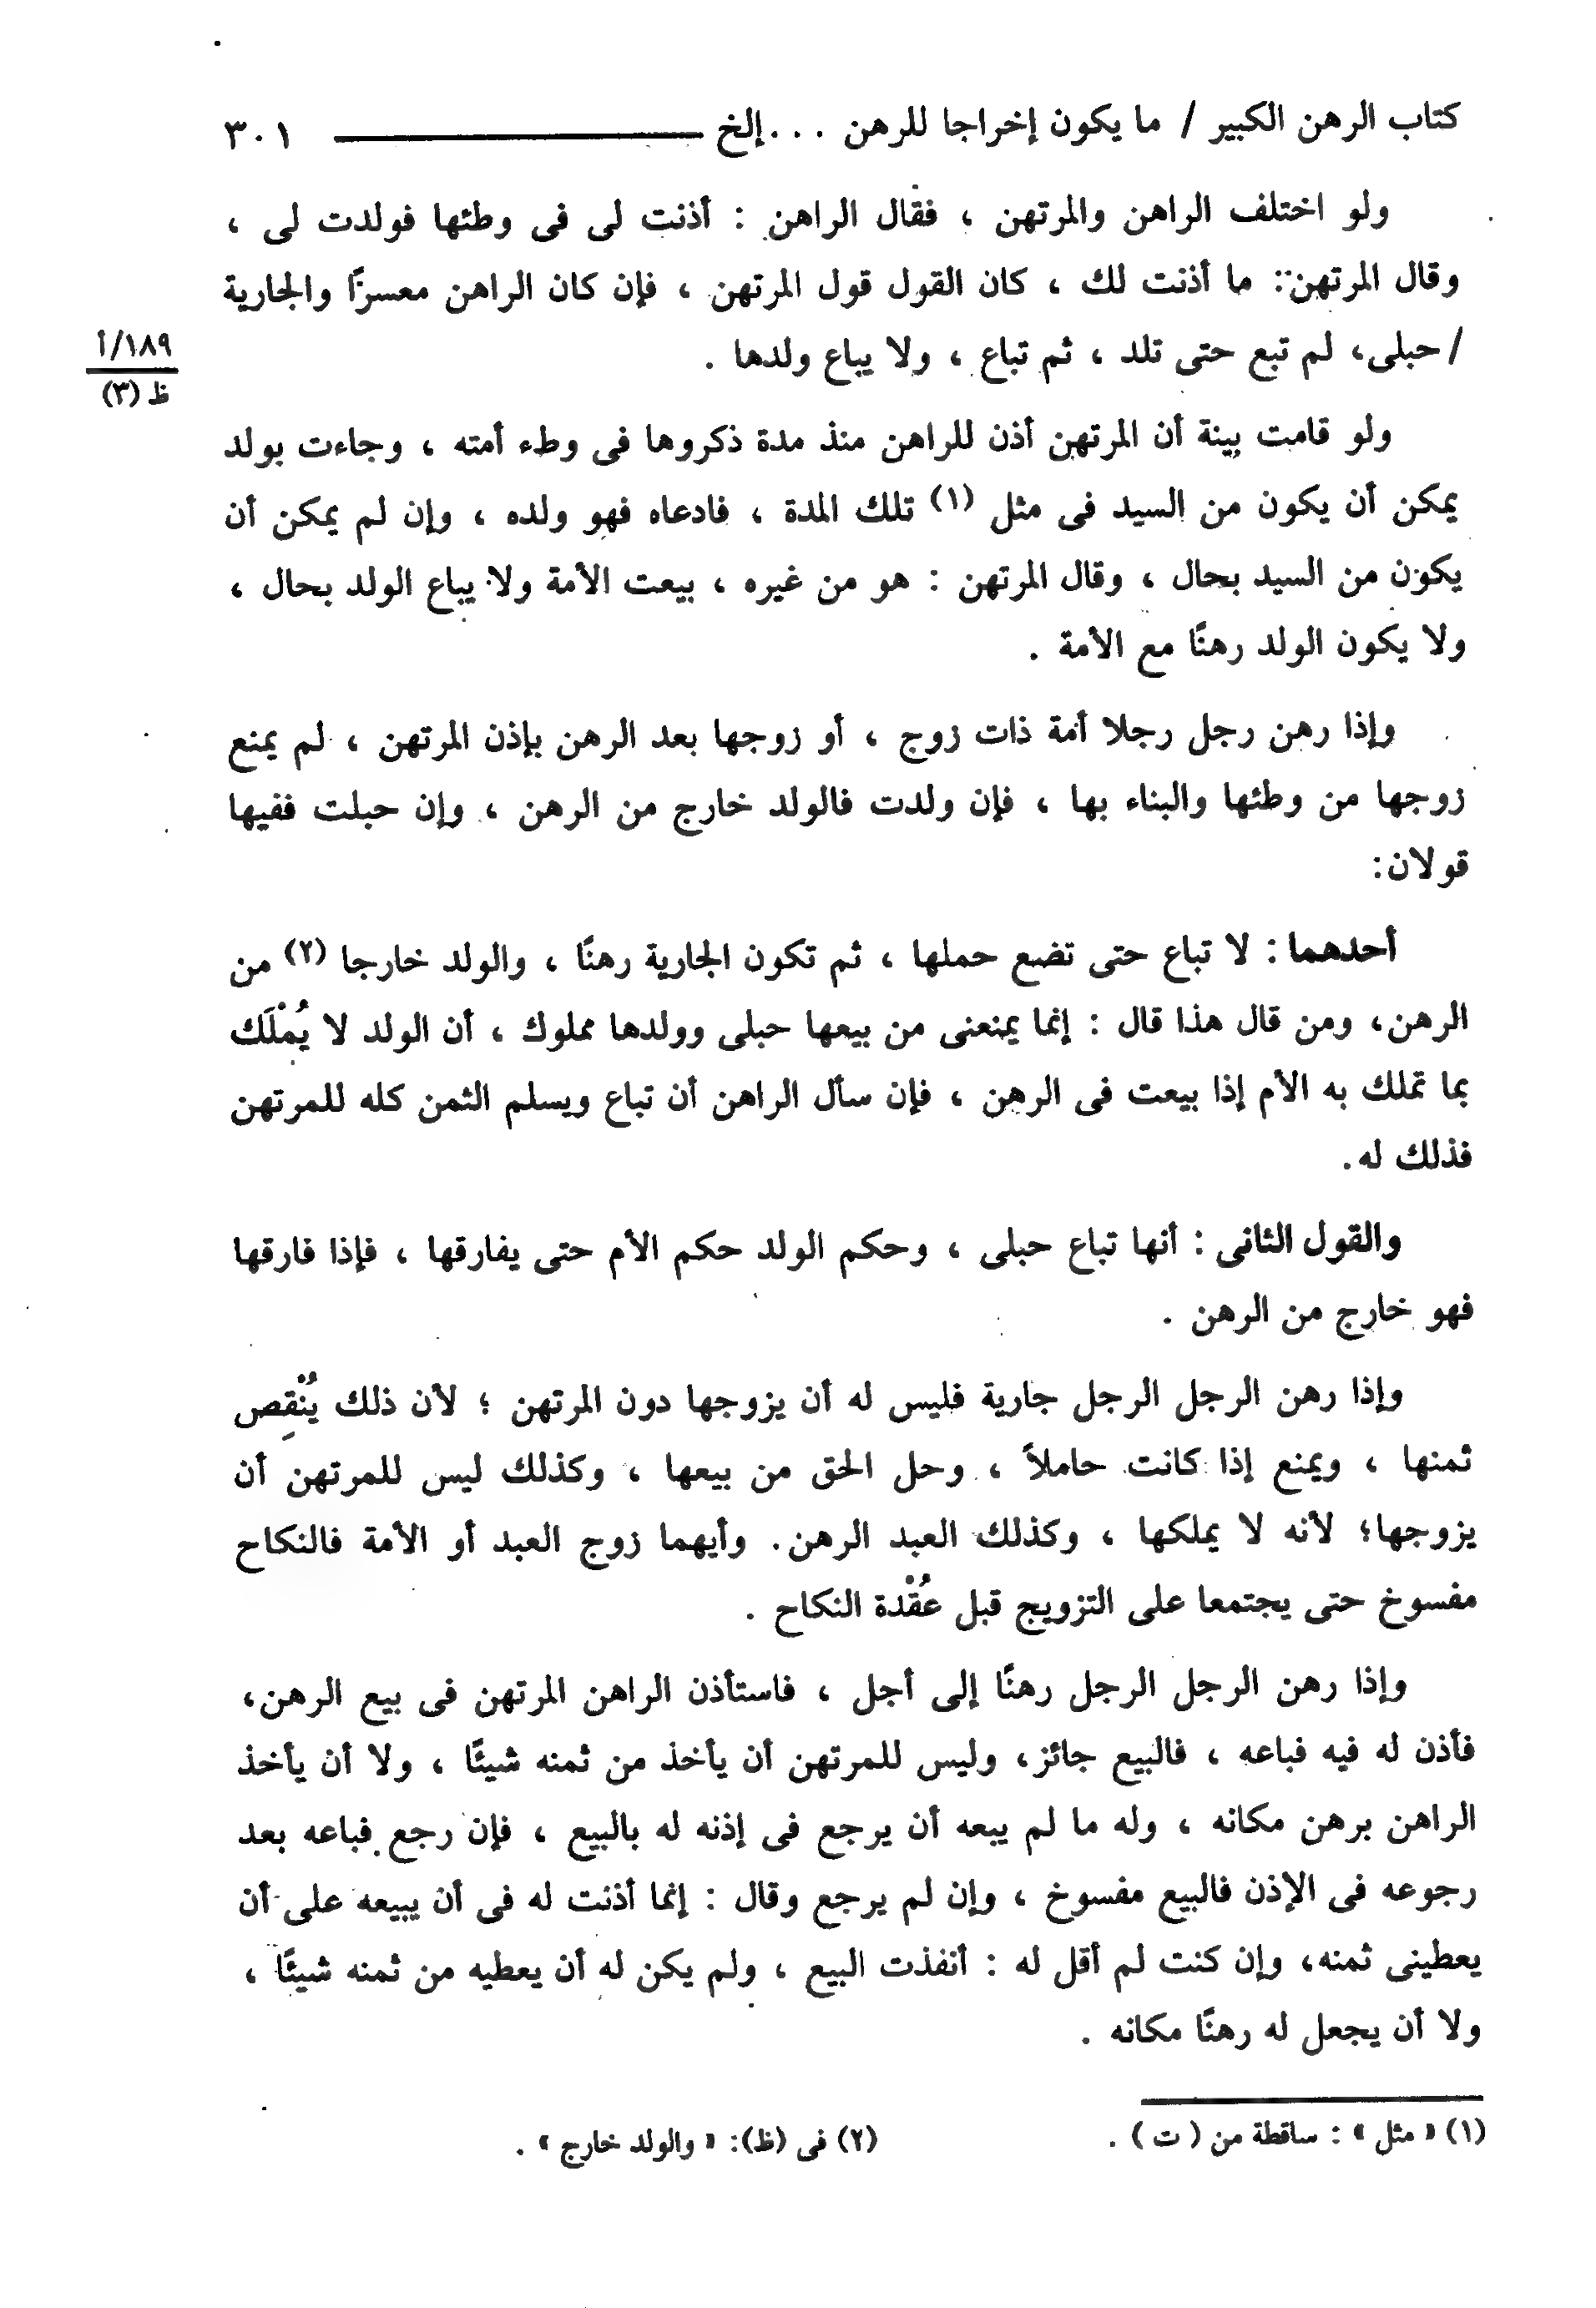 كتاب الرهن الكبير / ما يكون إخراجا للرهن . . . إلخ ٣٠١
ولو اختلف الراهن والمرتهن ، فقال الراهن : أذنت لى فى وطئها فولدت لى ،
وقال المرتهن: ما أذنت لك ، كان القول قول المرتهن ، فإن كان الراهن معسرًا والجارية
/ حبلى، لم تبع حتى تلد ، ثم تباع ، ولا يباع ولدها .
١٨٩/أ
ظ (٣)
ولو قامت بينة أن المرتهن أذن للراهن منذ مدة ذكروها فى وطء أمته ، وجاءت بولد
يمكن أن يكون من السيد فى مثل (١) تلك المدة ، فادعاه فهو ولده ، وإن لم يمكن أن
يكون من السيد بحال ، وقال المرتهن : هو من غيره ، بيعت الأمة ولا يباع الولد بحال ،
ولا يكون الولد رهنًا مع الأمة .
وإذا رهن رجل رجلا أمة ذات زوج ، أو زوجها بعد الرهن بإذن المرتهن ، لم يمنع
زوجها من وطئها والبناء بها ، فإن ولدت فالولد خارج من الرهن ، وإن حبلت ففيها
قولان:
أحدهما : لا تباع حتى تضع حملها ، ثم تكون الجارية رهنًا ، والولد خارجا (٢) من
الرهن، ومن قال هذا قال : إنما يمنعنى من بيعها حبلى وولدها مملوك ، أن الولد لا يُمْلَك
بما تملك به الأم إذا بيعت فى الرهن ، فإن سأل الراهن أن تباع ويسلم الثمن كله للمرتهن
فذلك له.
والقول الثانى : أنها تباع حبلى ، وحكم الولد حكم الأم حتى يفارقها ، فإذا فارقها
فهو خارج من الرهن .
وإذا رهن الرجل الرجل جارية فليس له أن يزوجها دون المرتهن ؛ لأن ذلك يُنْقِص
ثمنها ، ويمنع إذا كانت حاملاً ، وحل الحق من بيعها ، وكذلك ليس للمرتهن أن
يزوجها؛ لأنه لا يملكها ، وكذلك العبد الرهن. وأيهما زوج العبد أو الأمة فالنكاح
مفسوخ حتى يجتمعا على التزويج قبل عُقْدة النكاح .
وإذا رهن الرجل الرجل رهنًا إلى أجل ، فاستأذن الراهن المرتهن فى بيع الرهن،
فأذن له فيه فباعه ، فالبيع جائز، وليس للمرتهن أن يأخذ من ثمنه شيئًا ، ولا أن يأخذ
الراهن برهن مكانه ، وله ما لم يبعه أن يرجع فى إذنه له بالبيع ، فإن رجع فباعه بعد
رجوعه فى الإذن فالبيع مفسوخ ، وإن لم يرجع وقال : إنما أذنت له فى أن يبيعه على أن
يعطينى ثمنه، وإن كنت لم أقل له : أنفذت البيع ، ولم يكن له أن يعطيه من ثمنه شيئًا ،
ولا أن يجعل له رهنًا مكانه .
(١) « مثل » : ساقطة من ( ت ) . (٢) فى (ظ): « والولد خارج » .